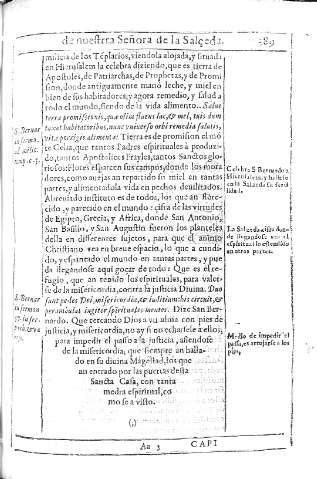 de nuestra Señora de la Salçeda. 389
milicia de los Tẽplarios, viendola alojada, y situada
en Hierusalem la celebra diziendo, que es tierra de
Apostoles, de Patriarchas, de Prophetas, y de Promi
sion, donde antiguamente manò leche, y miel en
bien de sus habitadores, y agora remedio, y salud a
todo el mundo, siendo de la vida alimento.. Salue
terra promissionis, quæ olim fluens lac, & mel, tuis dum
taxat habitatoribus, nunc vniuerso orbi remedia salutis,
vitæ porrigis alimenta: Tierra es de promision el mõ
te Celia, que tantos Padres espirituales à produzi-
do, tantos Apostolicos Frayles, tantos Sanctos glo-
riosos: Flores esparcen sus campos, donde los mora
dores, como auejas an repartido su miel en tantas
partes, y alimentadola vida en pechos deuilitados.
Abreuiado instituto es de todos, los que an flore-
cido, y parecido en el mundo: cifra de las virtudes
de Egipto, Grecia, y Africa, donde San Antonio,
San Basilio, y San Augustin fueron los planteles
della en differentes sujetos, para que el animo
Christiano vea en breue espacio, lo que a cundi-
do, y espaziendo el mundo en tantas partes, y pue
da llegandose aqui goçar de todo: Que es el re-
fugio, que an tenido los espirituales, para valer-
se de la misericordia, contra la justicia Diuina. Duo
sunt pedes Dei, misericordia, & iuditium hos circuit, &
perambulat iugiter spirituales mentes. Dize San Ber-
nardo. Que cercando Dios a vn alma con pies de
justicia, y misericordia, no ay sino echarsele a ellos,
para impedir el passo a la justicia, asiendose
de la misericordia, que siempre an halla-
do en su diuina Magestad, los que
an entrado por las puertas desta
Sancta Casa, con tanta
medra espiritual, co
mo se a visto.
(,)
S. Bernar
Celebra S. Bernardo a
lida l.
La Salçeda cifra don-
de llegandose ven el
espiritual lo estendido
en otras partes.
S. Bernar
in sermo
Medio de impedir el
passo, es arrojarse a los
pies,
Aa 3 CAPI